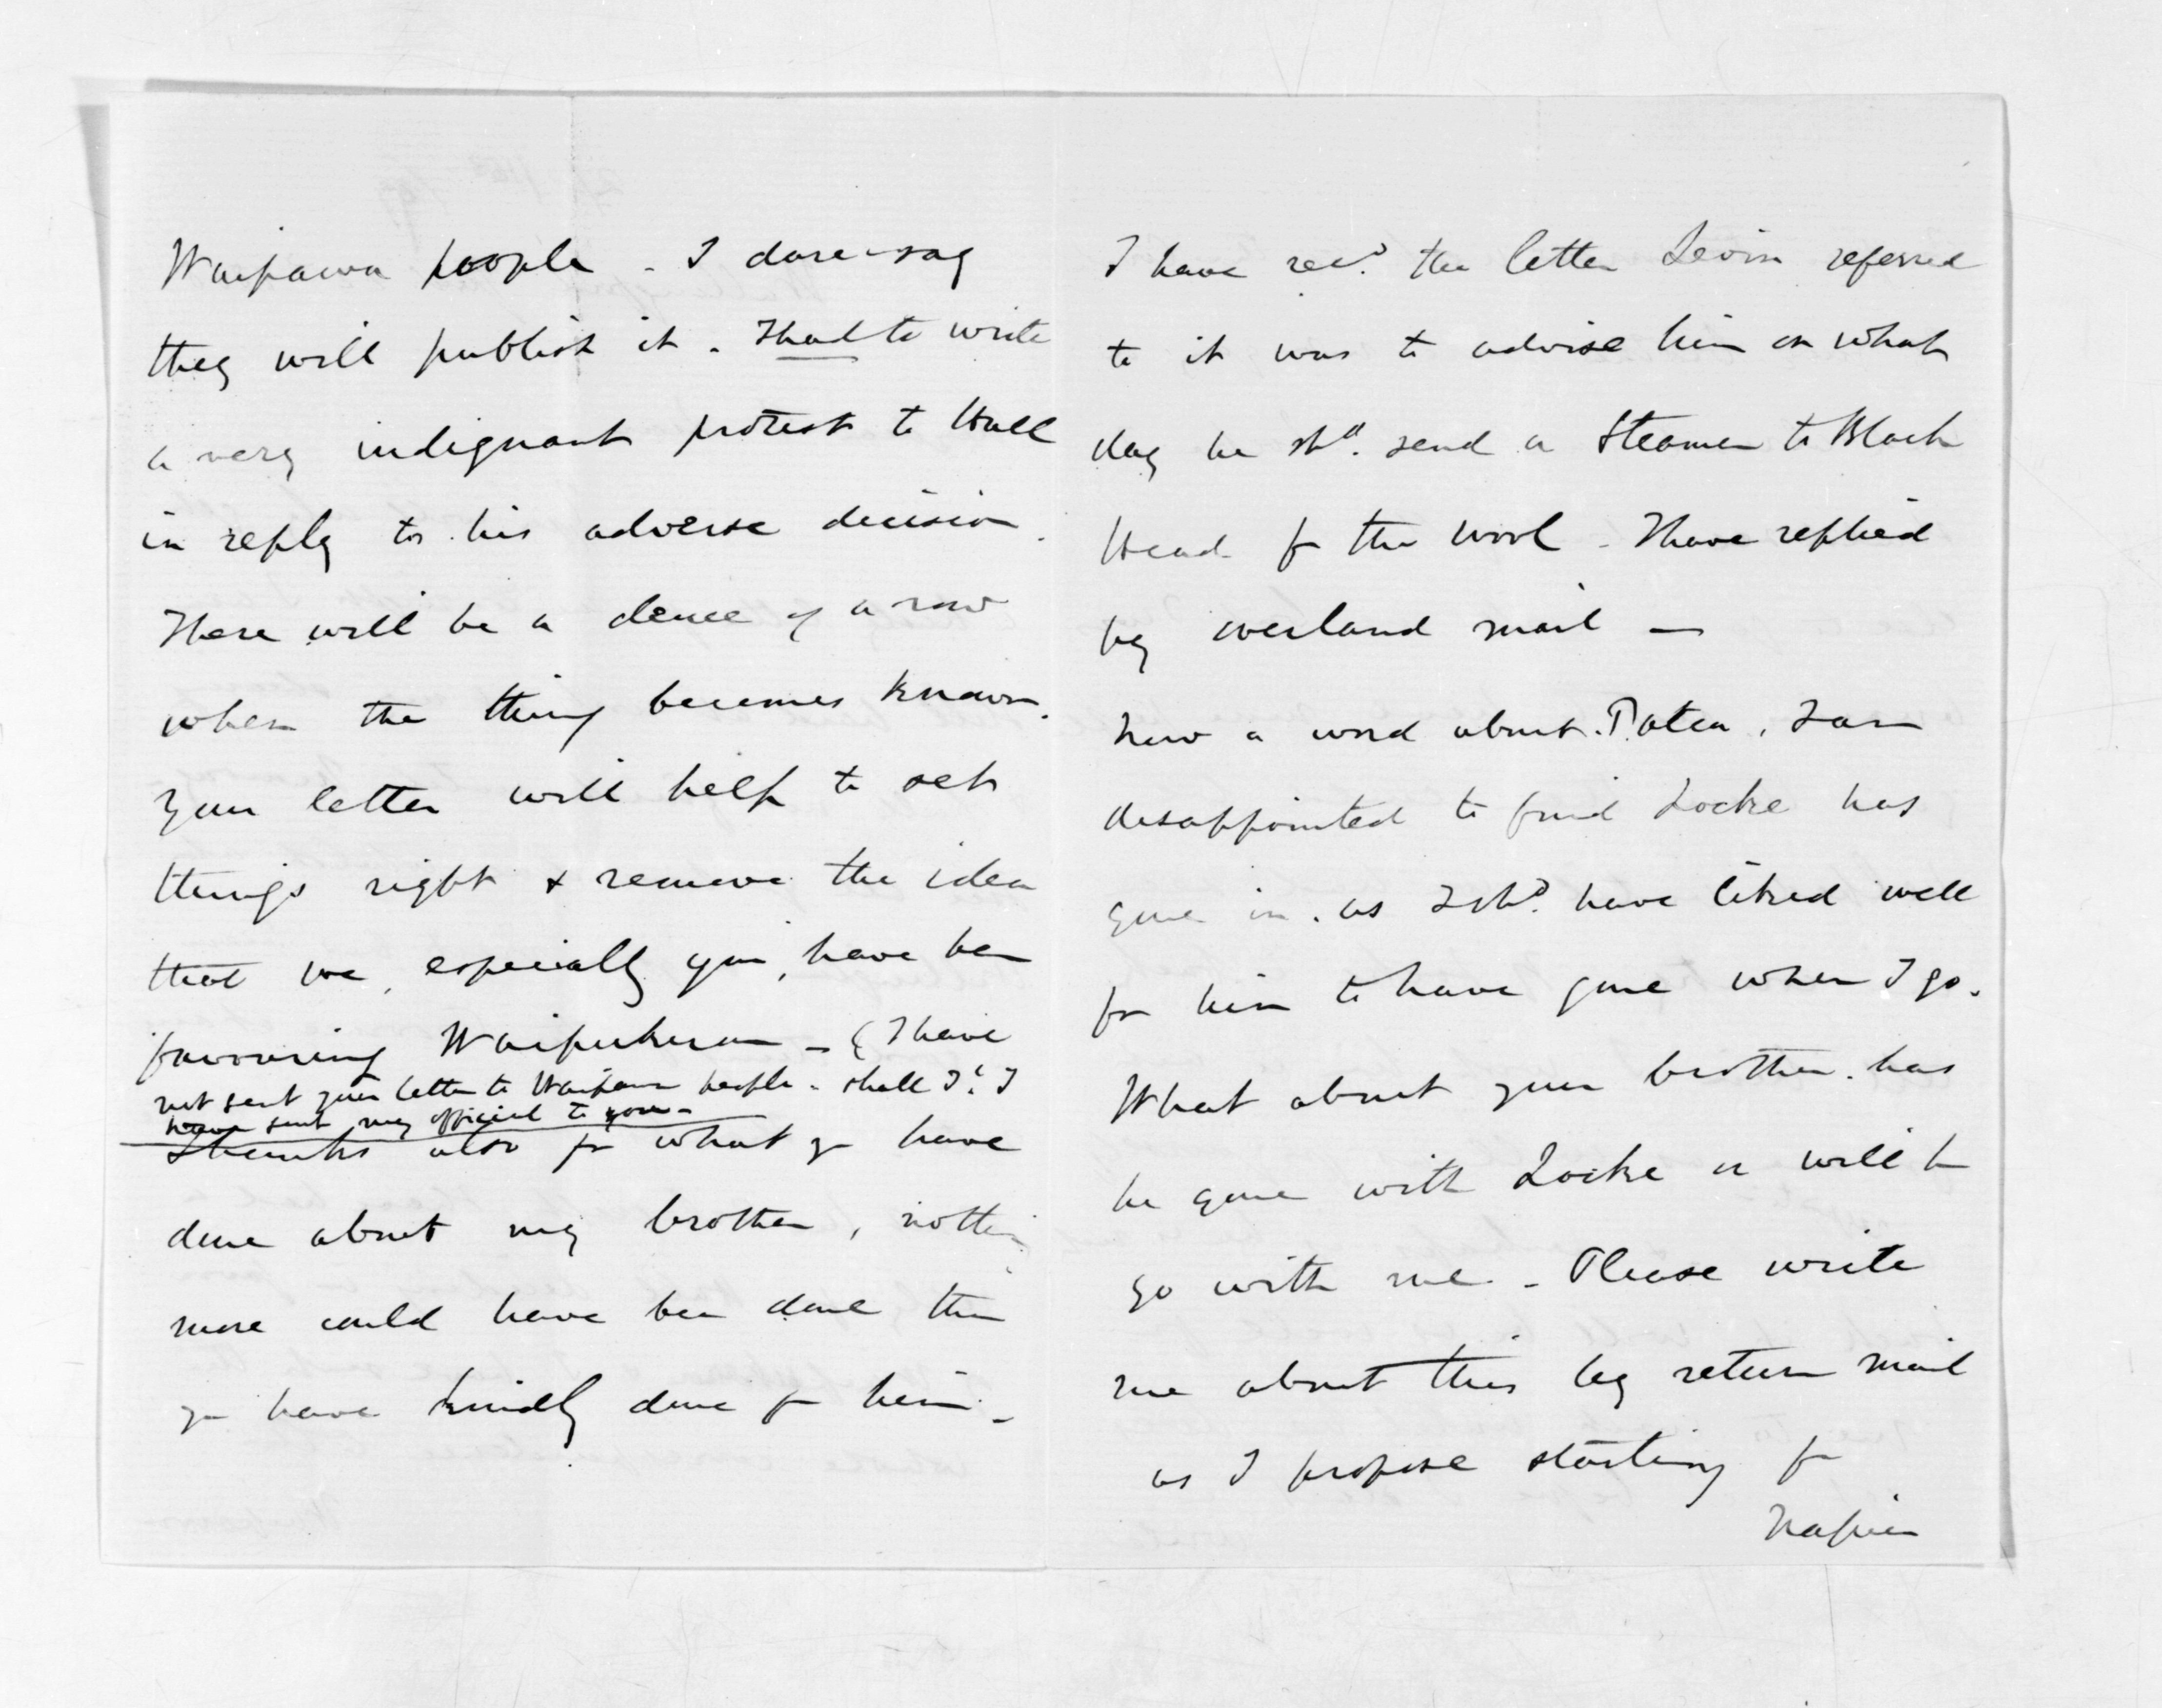 Waipawa people - I dare-say
they will publish it. I had to write
a very indignant protest to Hall
in reply to his adverse decision.
There will be a deuce of a row
when the thing becomes known.
Your letter will help to set
things right & remove the idea
that we, especially you, have been
favouring Waipukurau - (I have
not sent your letter to Waipawa people - shall I? I
have sent my official to you -
Thanks also for what you have
done about my brother, nothing
more could have been done than
you have kindly done for him. -
I have recd. the letter Levin referred
to it was to advise him on what
day he shd. send a Steamer to Black
Head for the wool - I have replied
by overland mail -
Now a word about Patea. I am
disappointed to find Locke has
gone in. as I shd. have liked well
for him to have gone when I go.
What about your brother. has
he gone with Locke or will he
go with me - Please write
me about this by return mail
as I propose starting for
Napier